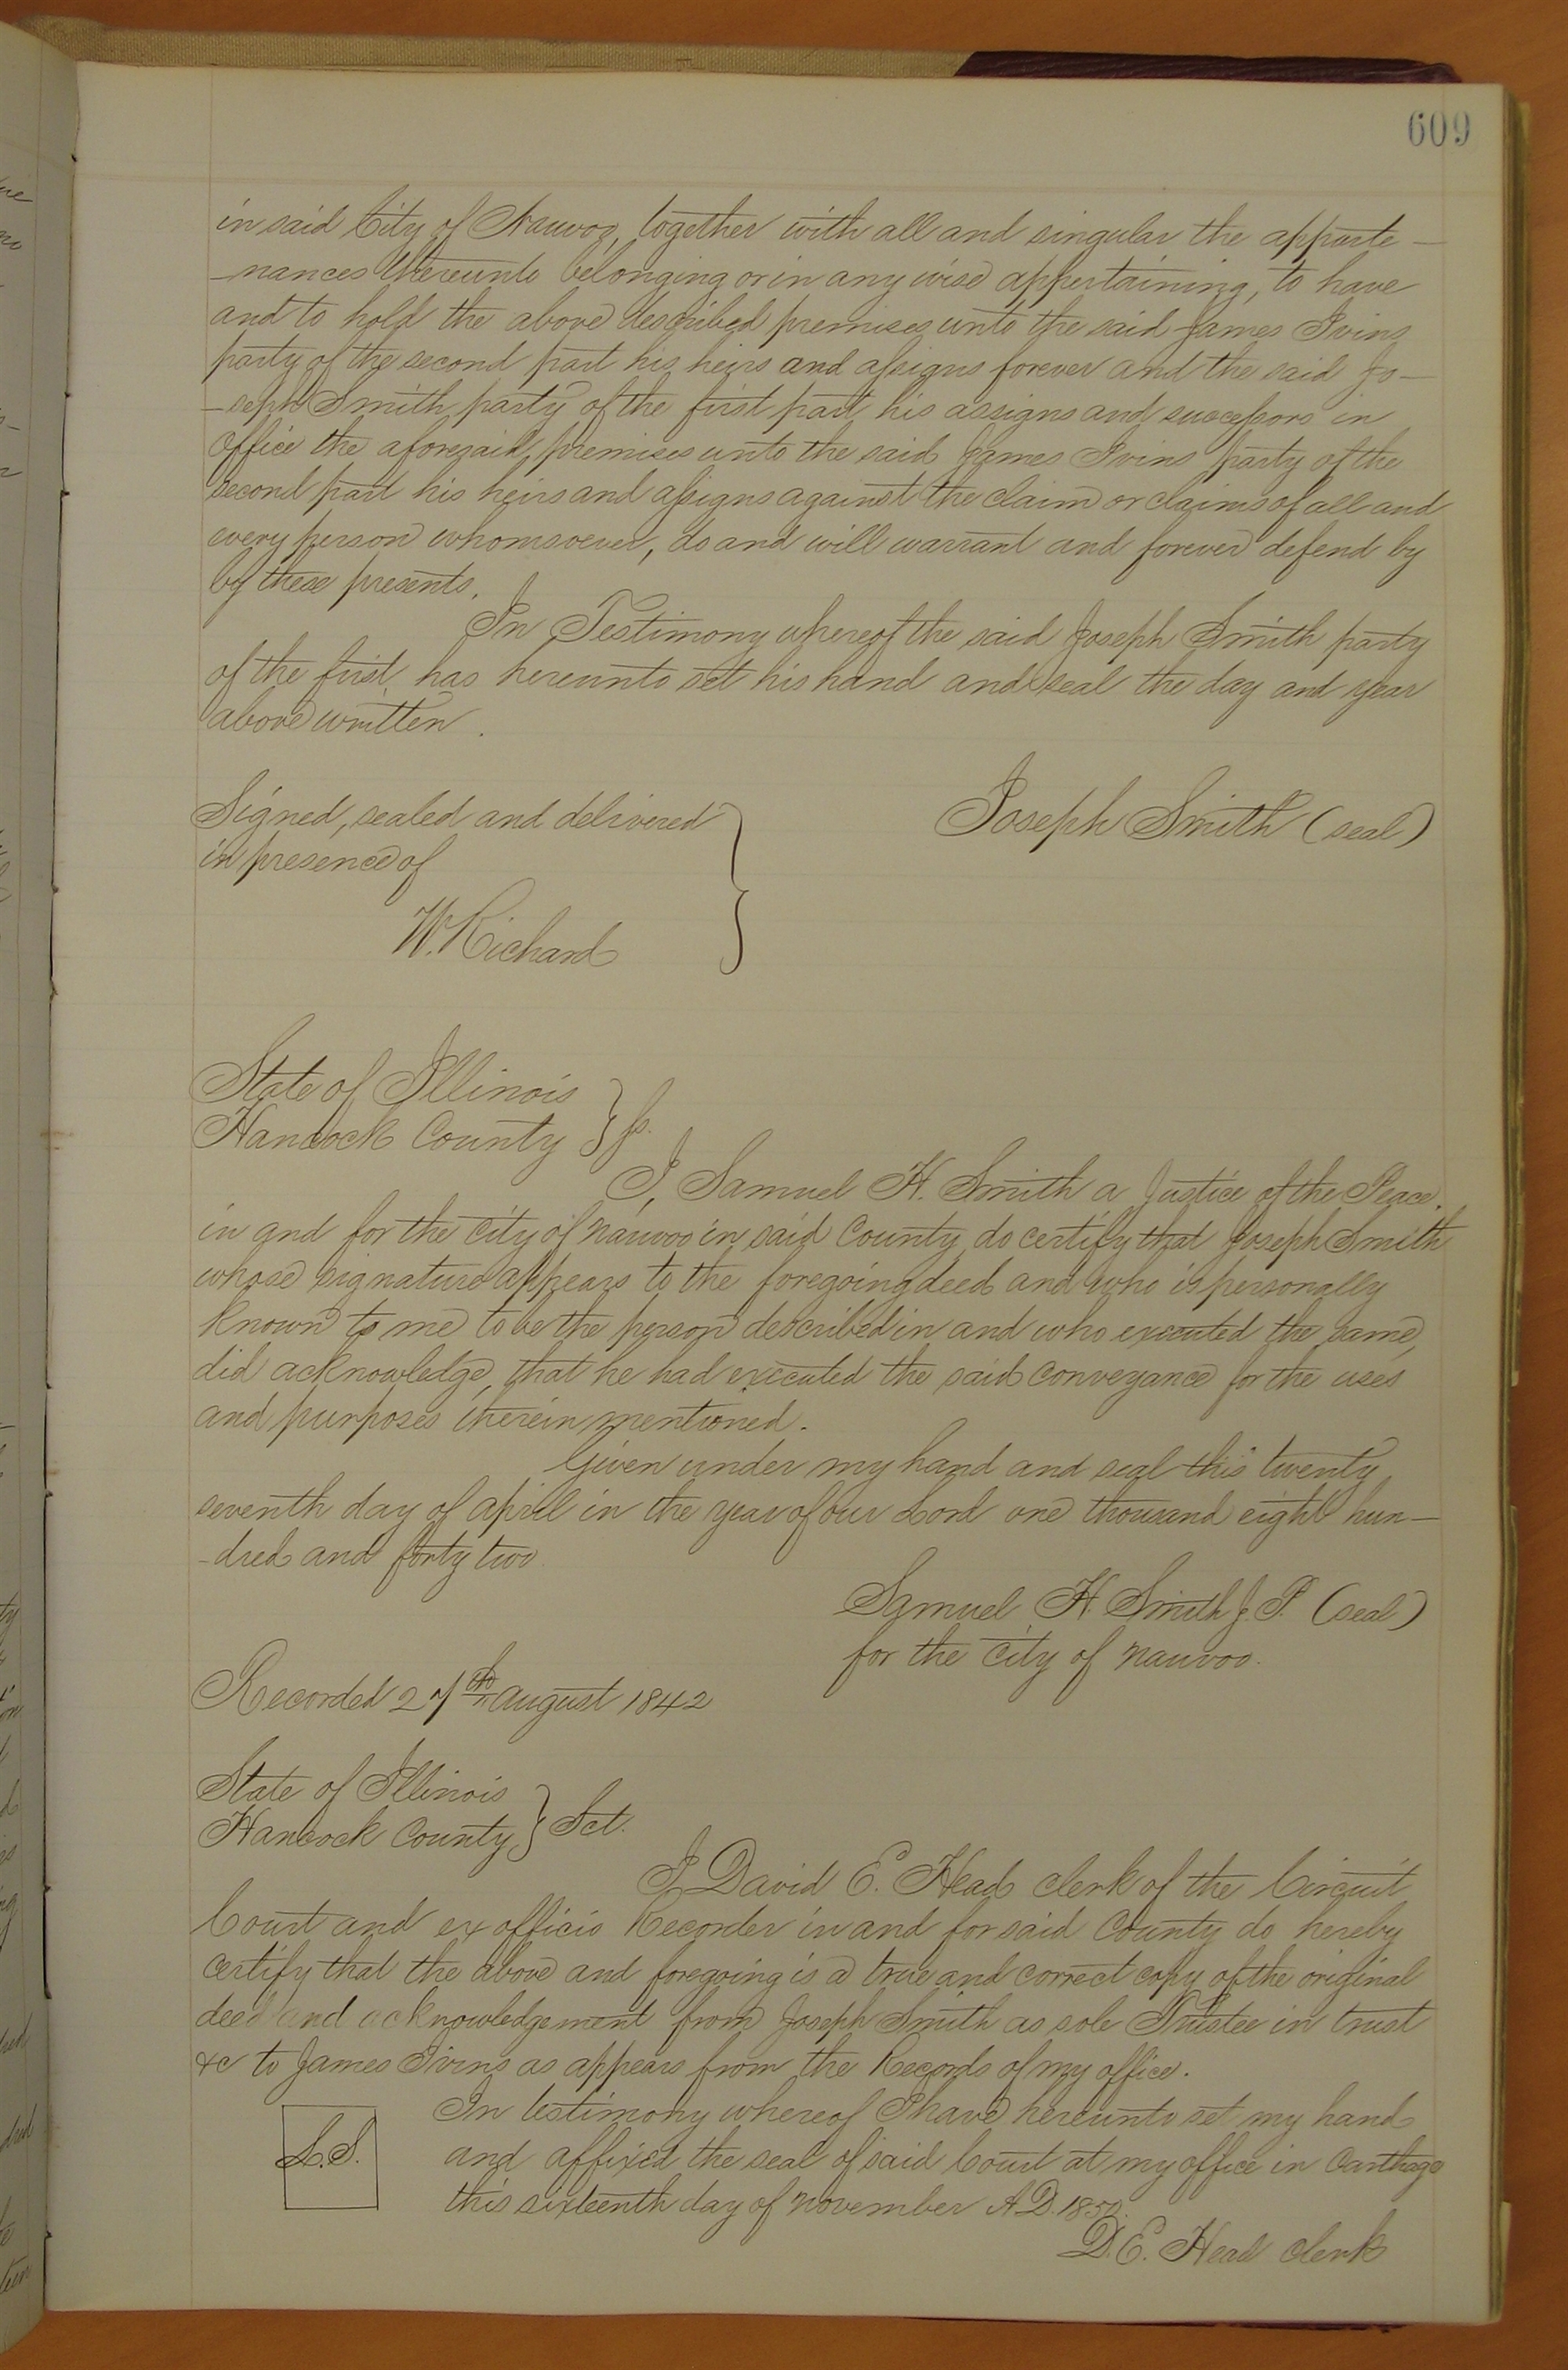 609
in said City of Nauvoo, together with all and singular the apparte-
-nances thereunto belonging or in any wise appertaining, to have
and to hold the above described premises unto the said James Ivins
party of the second part his heirs and assigns forever and the said Jo-
-seph Smith party of the first part his assigns and successors in
office the aforesaid, premises unto the said James Ivins party of the
second part his heirs and assigns against the claim or claims of all and
every person whomsoever, do and will warrant and forever defend by
by these presents.
In Testimony whereof the said Joseph Smith party
of the first, has hereunto set his hand and seal the day and year
above written.
Signed, sealed and delivered
in presence of
W. Richard
Joseph Smith (seal)
State of Illinois
Hancock County } ss.
I, Samuel H. Smith a Justice of the Peace.
in and for the City of Nauvoo in said County do certify that Joseph Smith
whose signature appears to the foregoing deed and who is personally
known to me to be the person described in and who executed the same,
did acknowledge, that he had executed the said conveyance for the uses
and purposes therein mentioned.
Given under my hand and seal this twenty
seventh day of april in the year of our Lord one thousand eight hun-
-dred and forty two
Samuel H. Smith J. P. (seal)
for the City of Nauvoo.
Recorded 27th august 1842
State of Illinois
Hancock County } Sct.
I David E. Head clerk of the Circuit
Court and ex officio Recorder in and for said County do hereby
certify that the above and foregoing is a true and correct copy of the original
deed and acknowledgement from Joseph Smith as sole Trustee in trust
&c to James Ivins as appears from the Records of my office.
In testimony whereof I have hereunto set my hand
L.S.
and affixed the seal of said Court at my office in Carthage
this sixteenth day of November A.D. 1850.
D. E. Head clerk